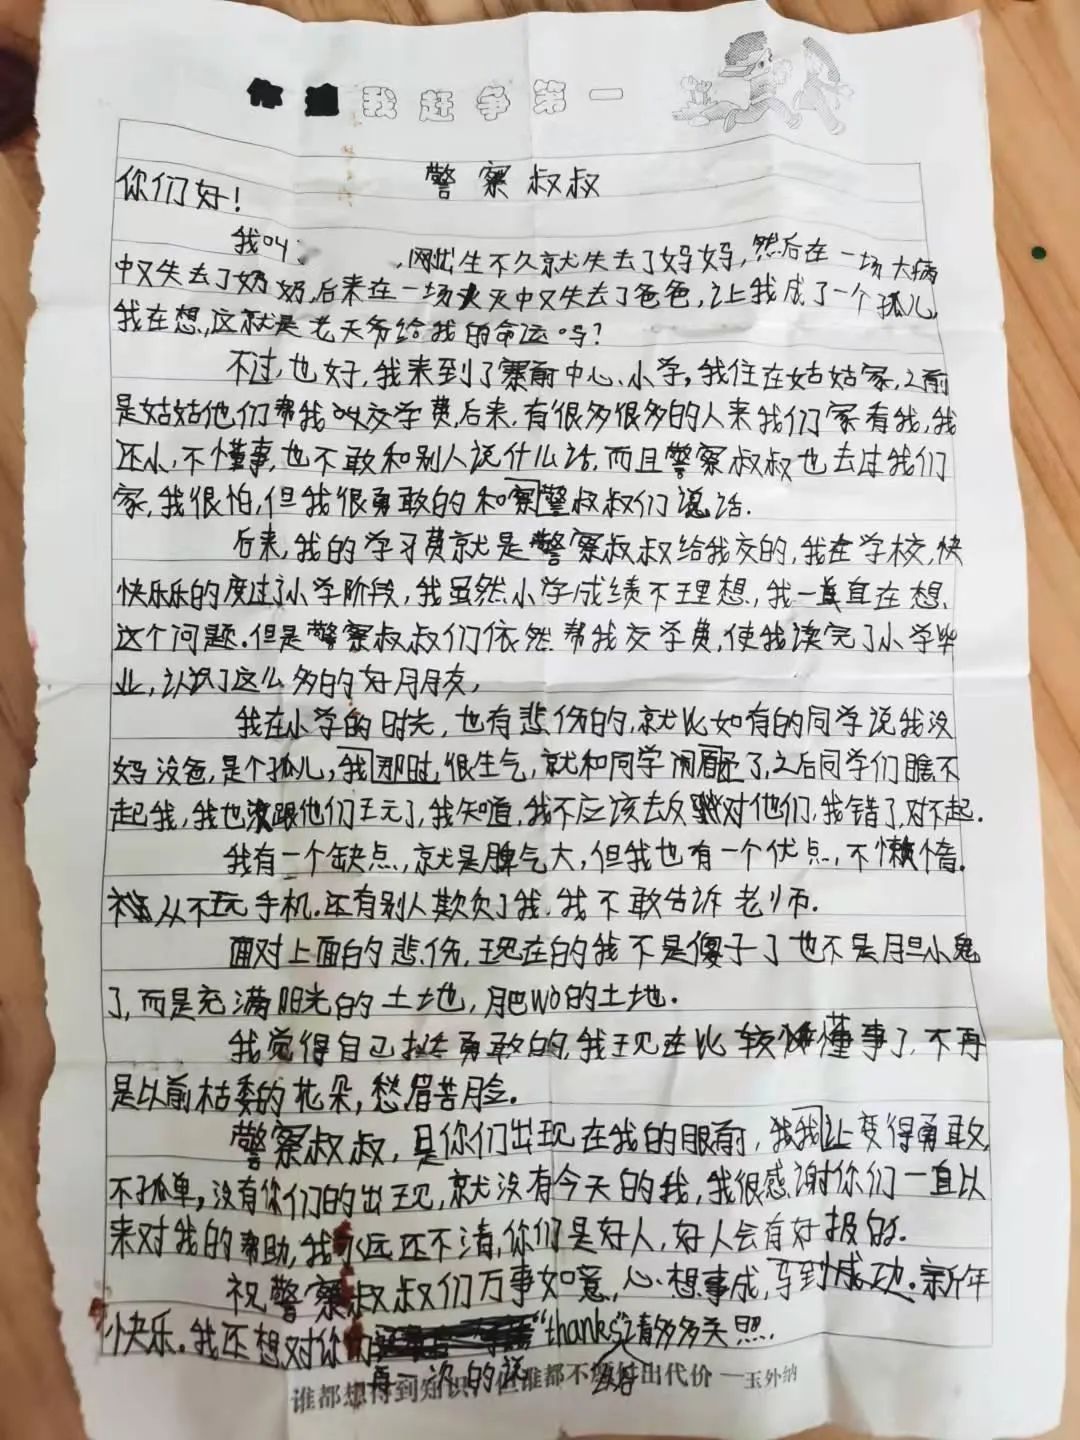 你追我赶争第一
警察叔叔
你们好!
我叫 ,刚出生不久就失去了妈妈,然后在一场大病
中又失去了奶奶,后来在一场火灾中又失去了爸爸,让我成了一个孤儿,
我在想,这就是老天爷给我的命运吗?
不过,也好,我来到了寨前中心小学,我住在姑姑家,之前
是姑姑他们帮我叫交学费,后来,有很多很多的人来我们家看我,我
还小,不懂事,也不敢和别人说什么话,而且警察叔叔也去过我们
家,我很怕,但我很勇敢的和察警叔叔们说话.
后来,我的学习费就是警察叔叔给我交的,我在学校,快
快乐乐的度过了小学阶段,我虽然小学成绩不理想,我一直在想,
这个问题.但是警察叔叔们依然帮我交学费,使我读完了小学毕
业,认识了这么多的好朋友,
我在小学的时光,也有悲伤的,就比如有的同学说我没
妈没爸,是个孤儿,我那时,很生气,就和同学闹了,之后同学们瞧不
起我,我也没跟他们玩了,我知道,我不应该去反对他们,我错了,对不起.
我有一个缺点,就是脾气大,但我也有一个优点,不懒惰.
从不玩手机.还有别人欺负了我,我不敢告诉老师.
面对上面的悲伤,现在的我不是傻子了也不是胆小鬼
了,而是充满阳光的土地,肥wò的土地.
我觉得自己挺勇敢的,我现在比较懂事了,不再
是以前枯萎的花朵,愁眉苦脸.
警察叔叔,是你们出现在我的眼前,我让变得勇敢,
不孤单,没有你们的出现,就没有今天的我,我很感谢你们一直以
来对我的帮助,我永远还不清,你们是好人,好人会有好报的.
祝警察叔叔们万事如意,心想事成,马到成功.新年
快乐.我还想对你们"thanks"请多多关照.
再一次的
谁都想得到知识,但谁都不愿付出代价 —玉外纳